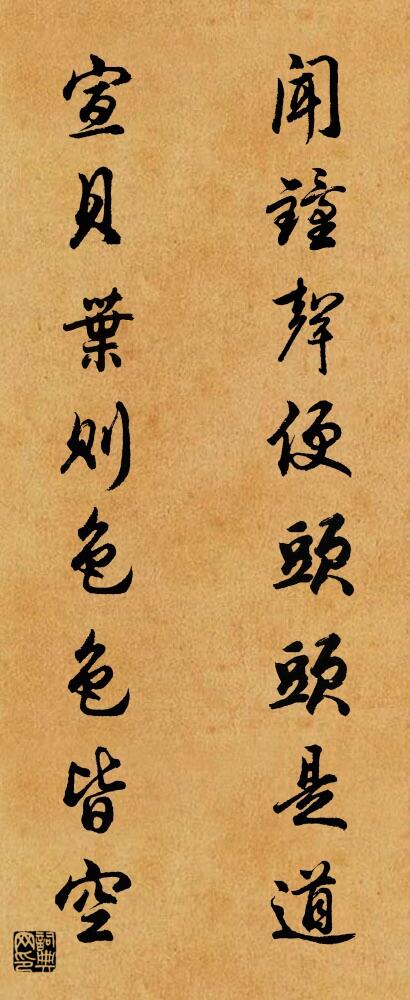 聞鐘聲便頭頭是道
宣貝葉則色色皆空
詞典網印